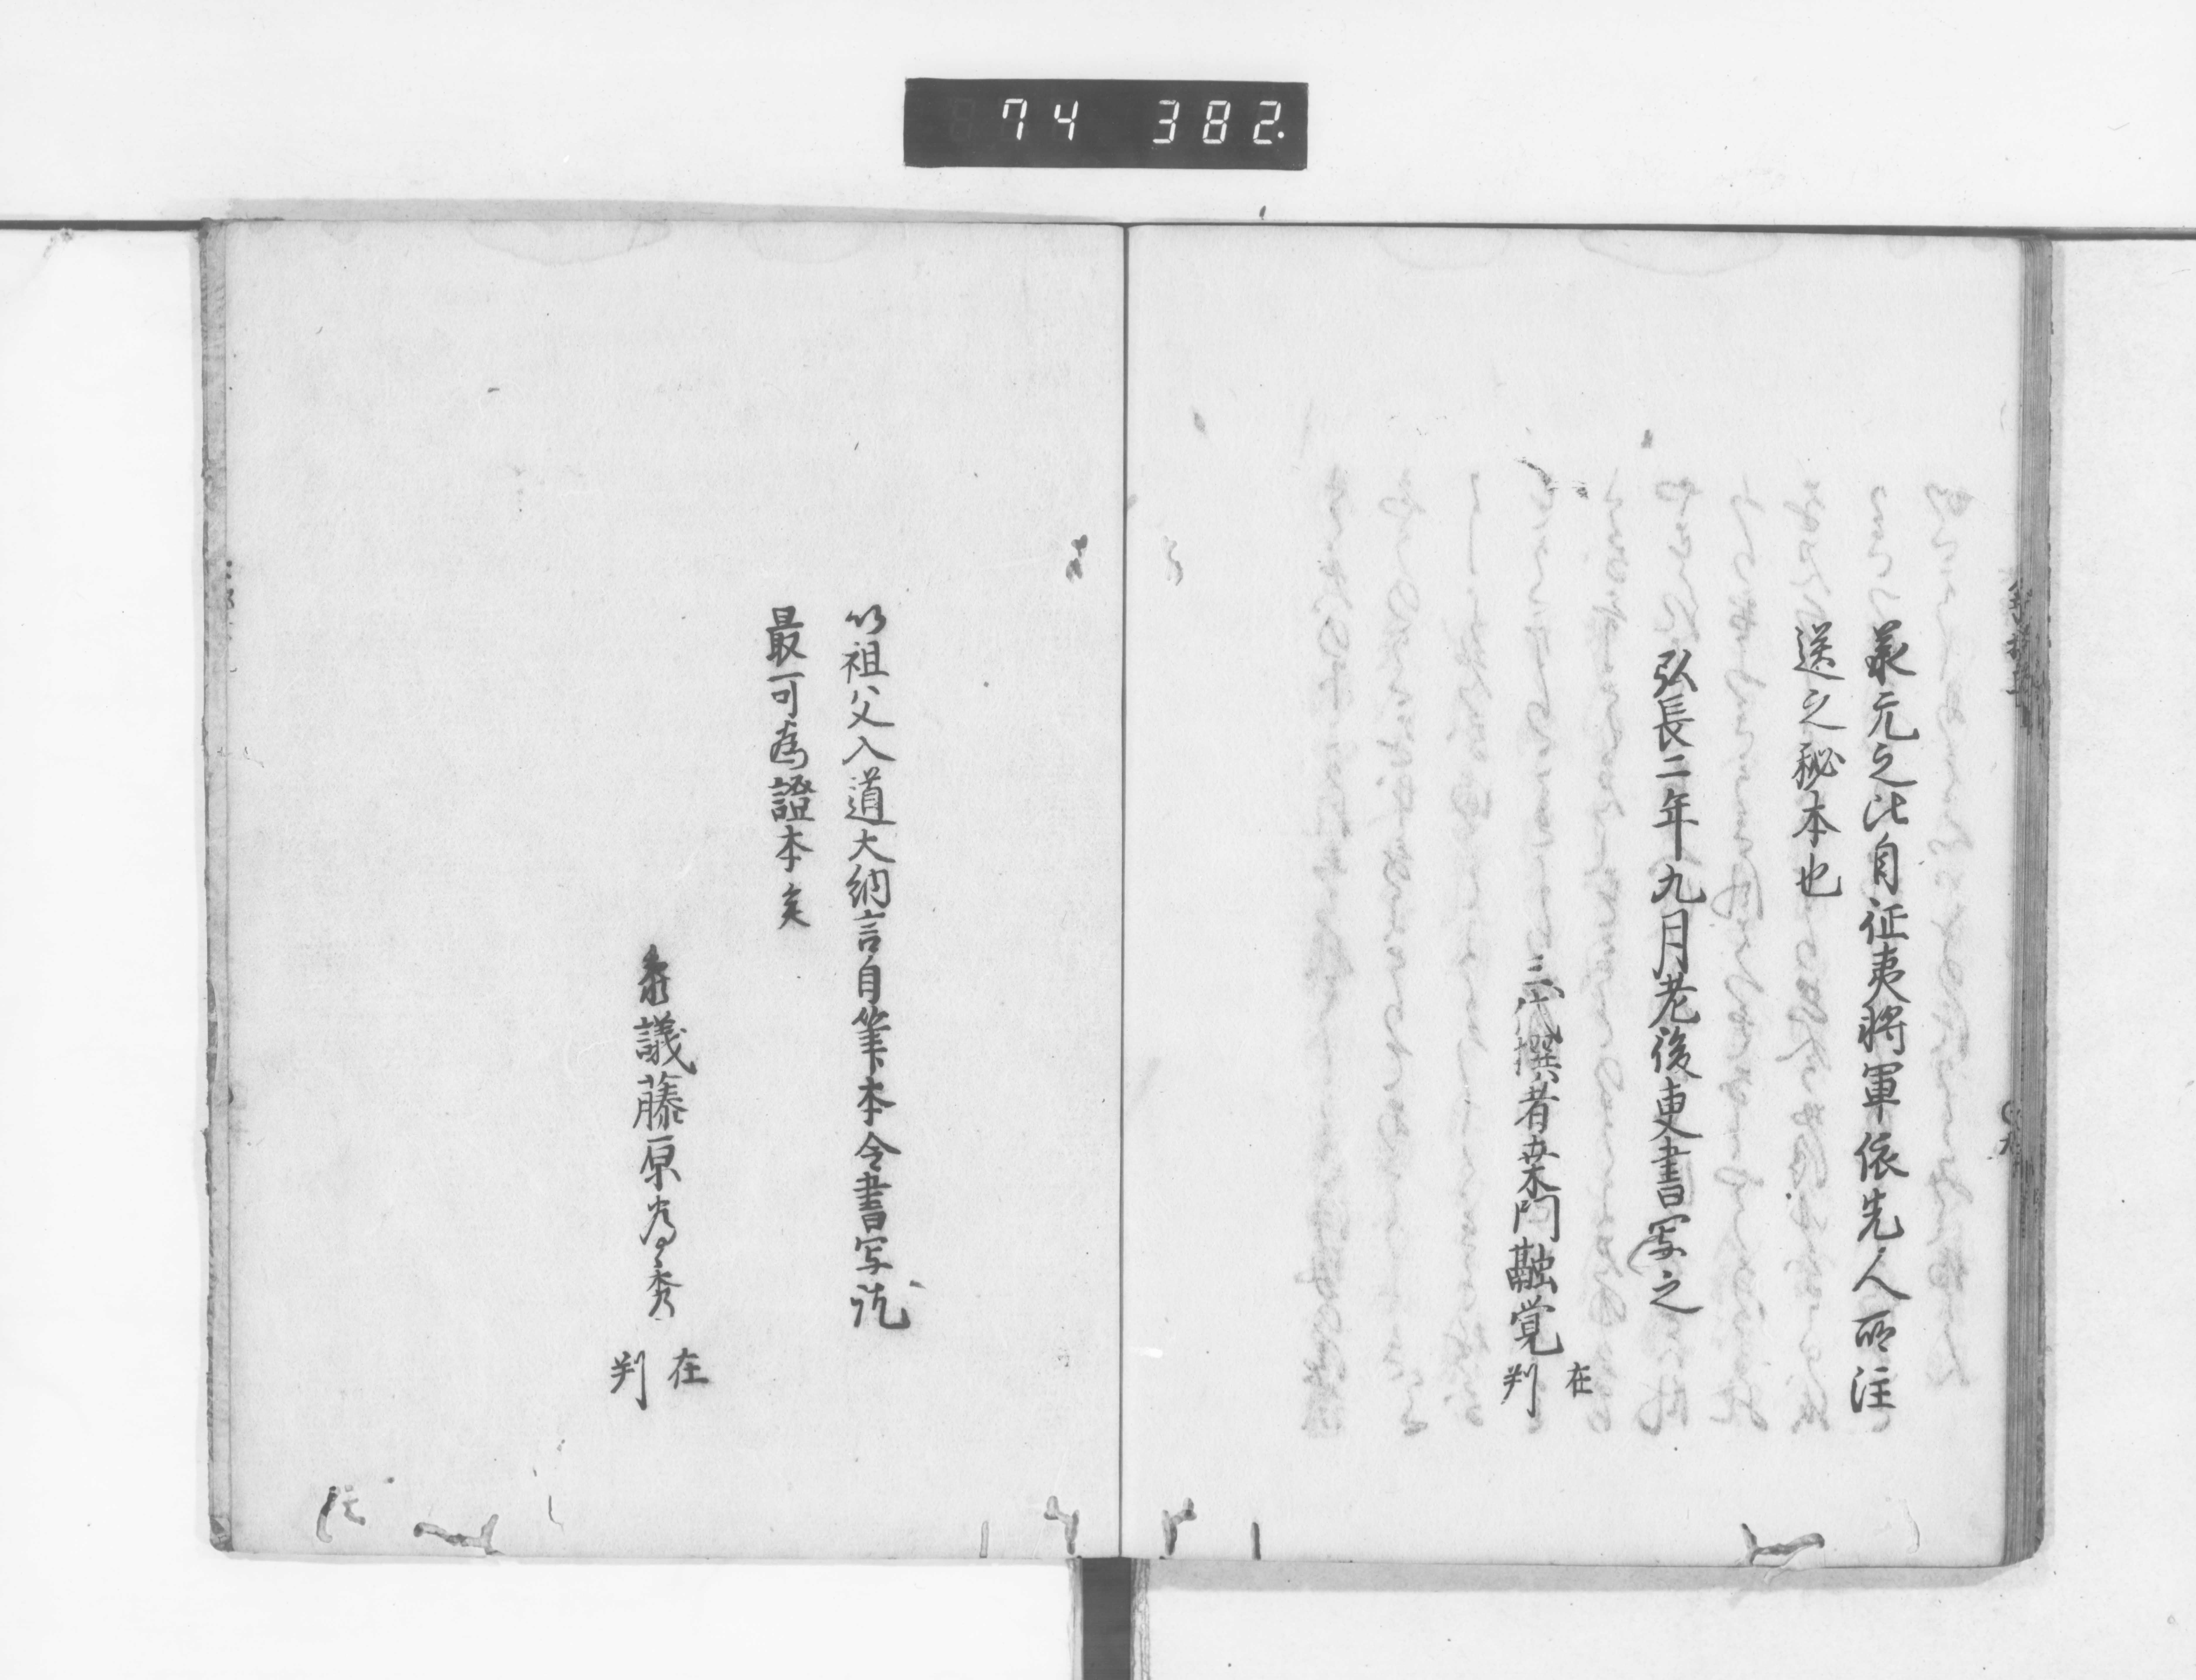 74 382.
承元之比自征夷将軍依先人所注
送之秘本也
弘長二年九月老後更書写之
三代撰者桒門融覚 在判
以祖父入道大納言自筆本令書写訖
最可為證本矣
参議藤原為秀 在判